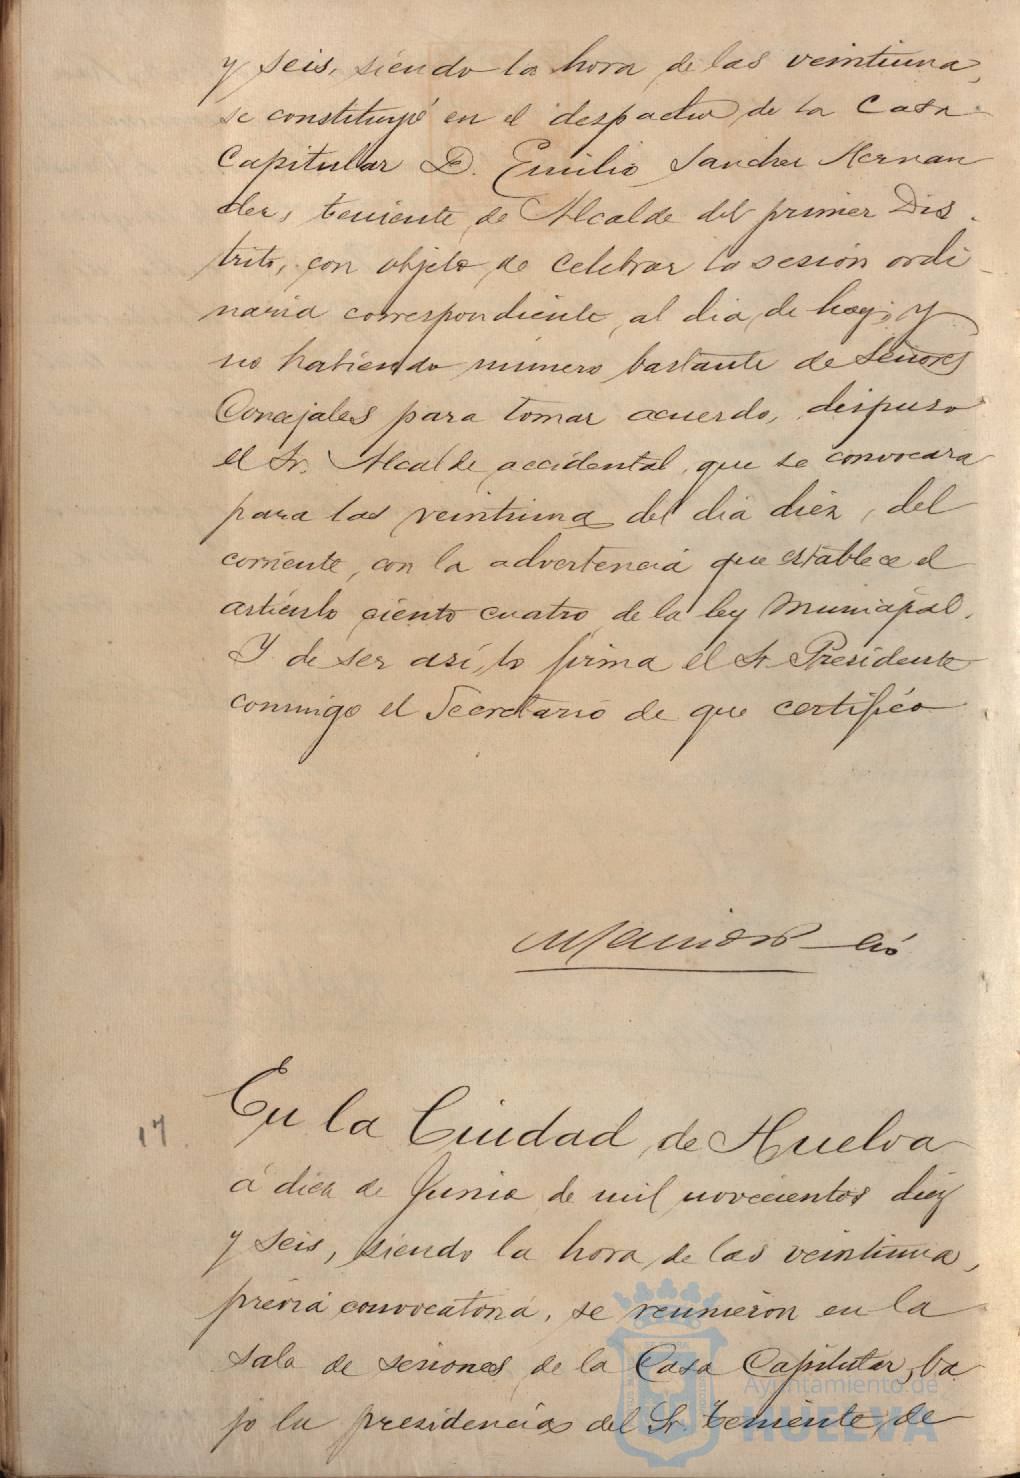 y seis, siendo la hora de las veintiuna,
se constituyó en el despacho de la Casa
Capitular D. Emilio Sanchez Hernan
dez, teniente de Alcalde del primer Dis-
trito, con objeto de celebrar la sesión ordi-
naria correspondiente al dia de hoy; y
no habiendo número bastante de Señores
Concejales para tomar acuerdo, dispuso
el Sr. Alcalde accidental que se convocara
para las veintiuna del dia diez, del
corriente, con la advertencia que establece el
artículo ciento cuatro de la ley Municipal.
Y de ser así, lo firma el Sr Presidente
conmigo el Secretario de que certifico
17.
En la Ciudad de Huelva
á diez de Junio de mil novecientos diez
y seis, siendo la hora de las veintiuna,
previa convocatoria, se reunieron en la
sala de sesiones de la Casa Capitular, ba
jo la presidencia del Sr. teniente de
Ayuntamiento de
HUELVA